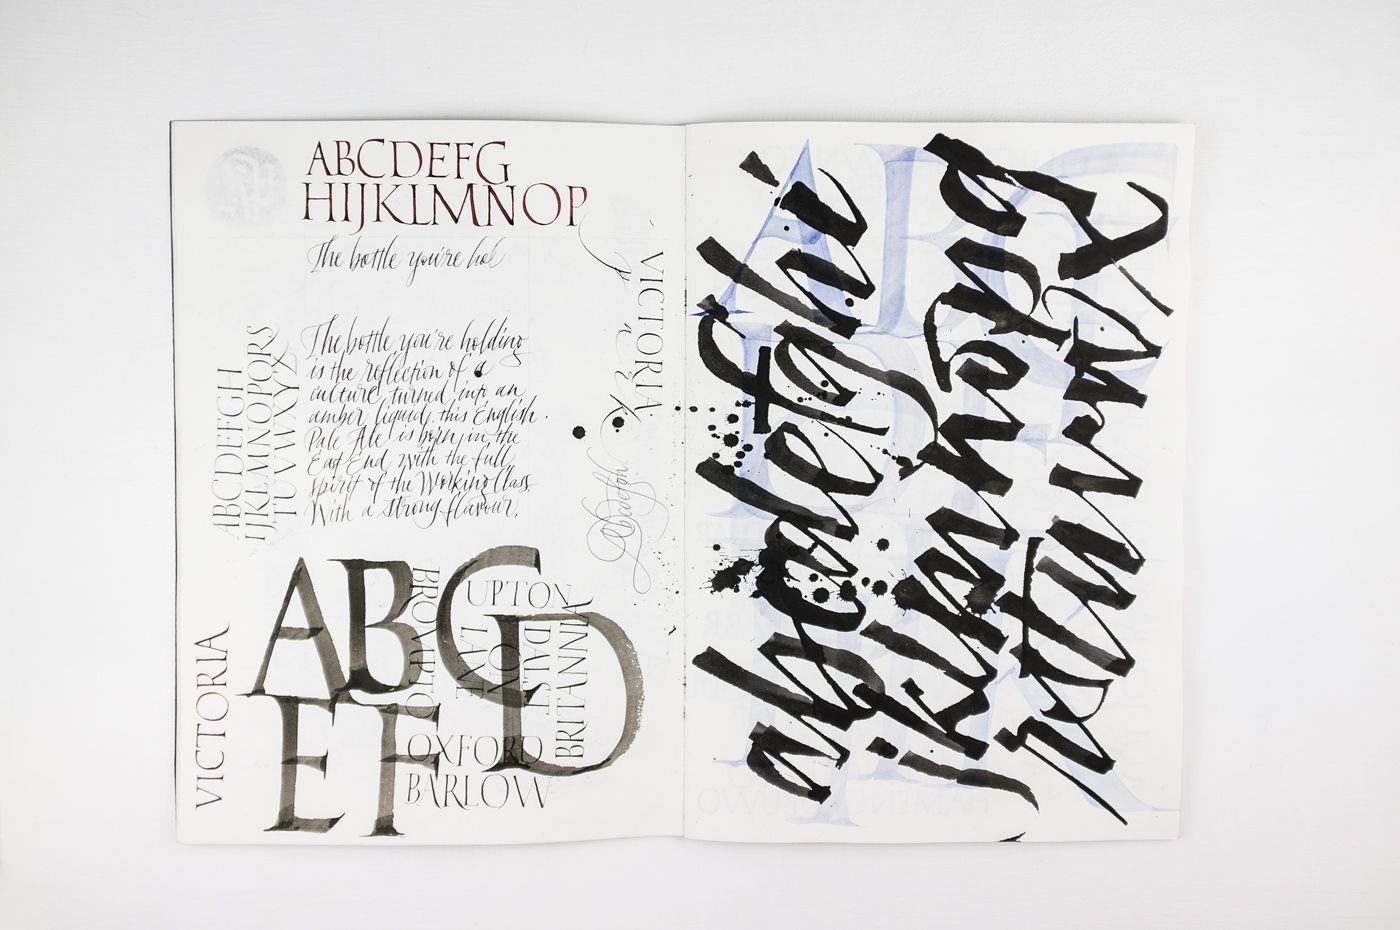 ABCDEFG
HIJKLMNOP
The bottle you're hol
The bottle you're holding
is the reflection of a
culture turned into an
amber liquid, this English
Pale Ale is born in the
East End, with the full
spirit of the Working Class.
With a strong flavour.
ABCDEFGH
IJKLMNOPQRS
TUVWXYZ
VICTORIA
VICTORIA
ABC
D
EF
BROMPTO
UPTON
LAVE
DALST
ON
BRITANNIA
OXFORD
BARLOW
abcdefghi
jklmnopq
rstuvwxyz
ABC